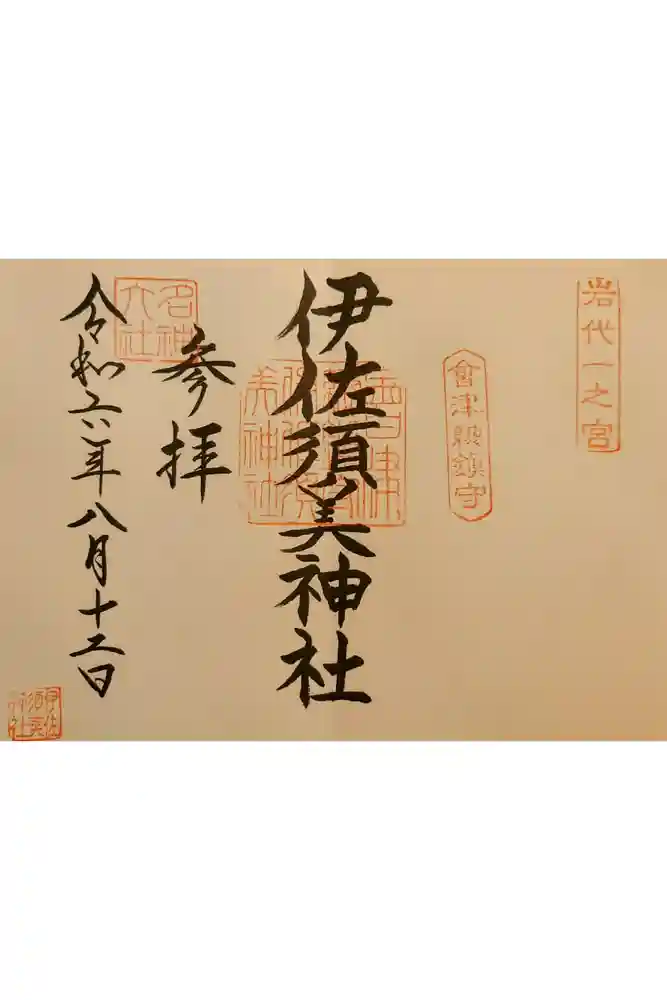 岩代一之宮
會津総鎮守
伊佐須美神社
参拝
名神大社
令和六年八月十二日
伊佐須美神社